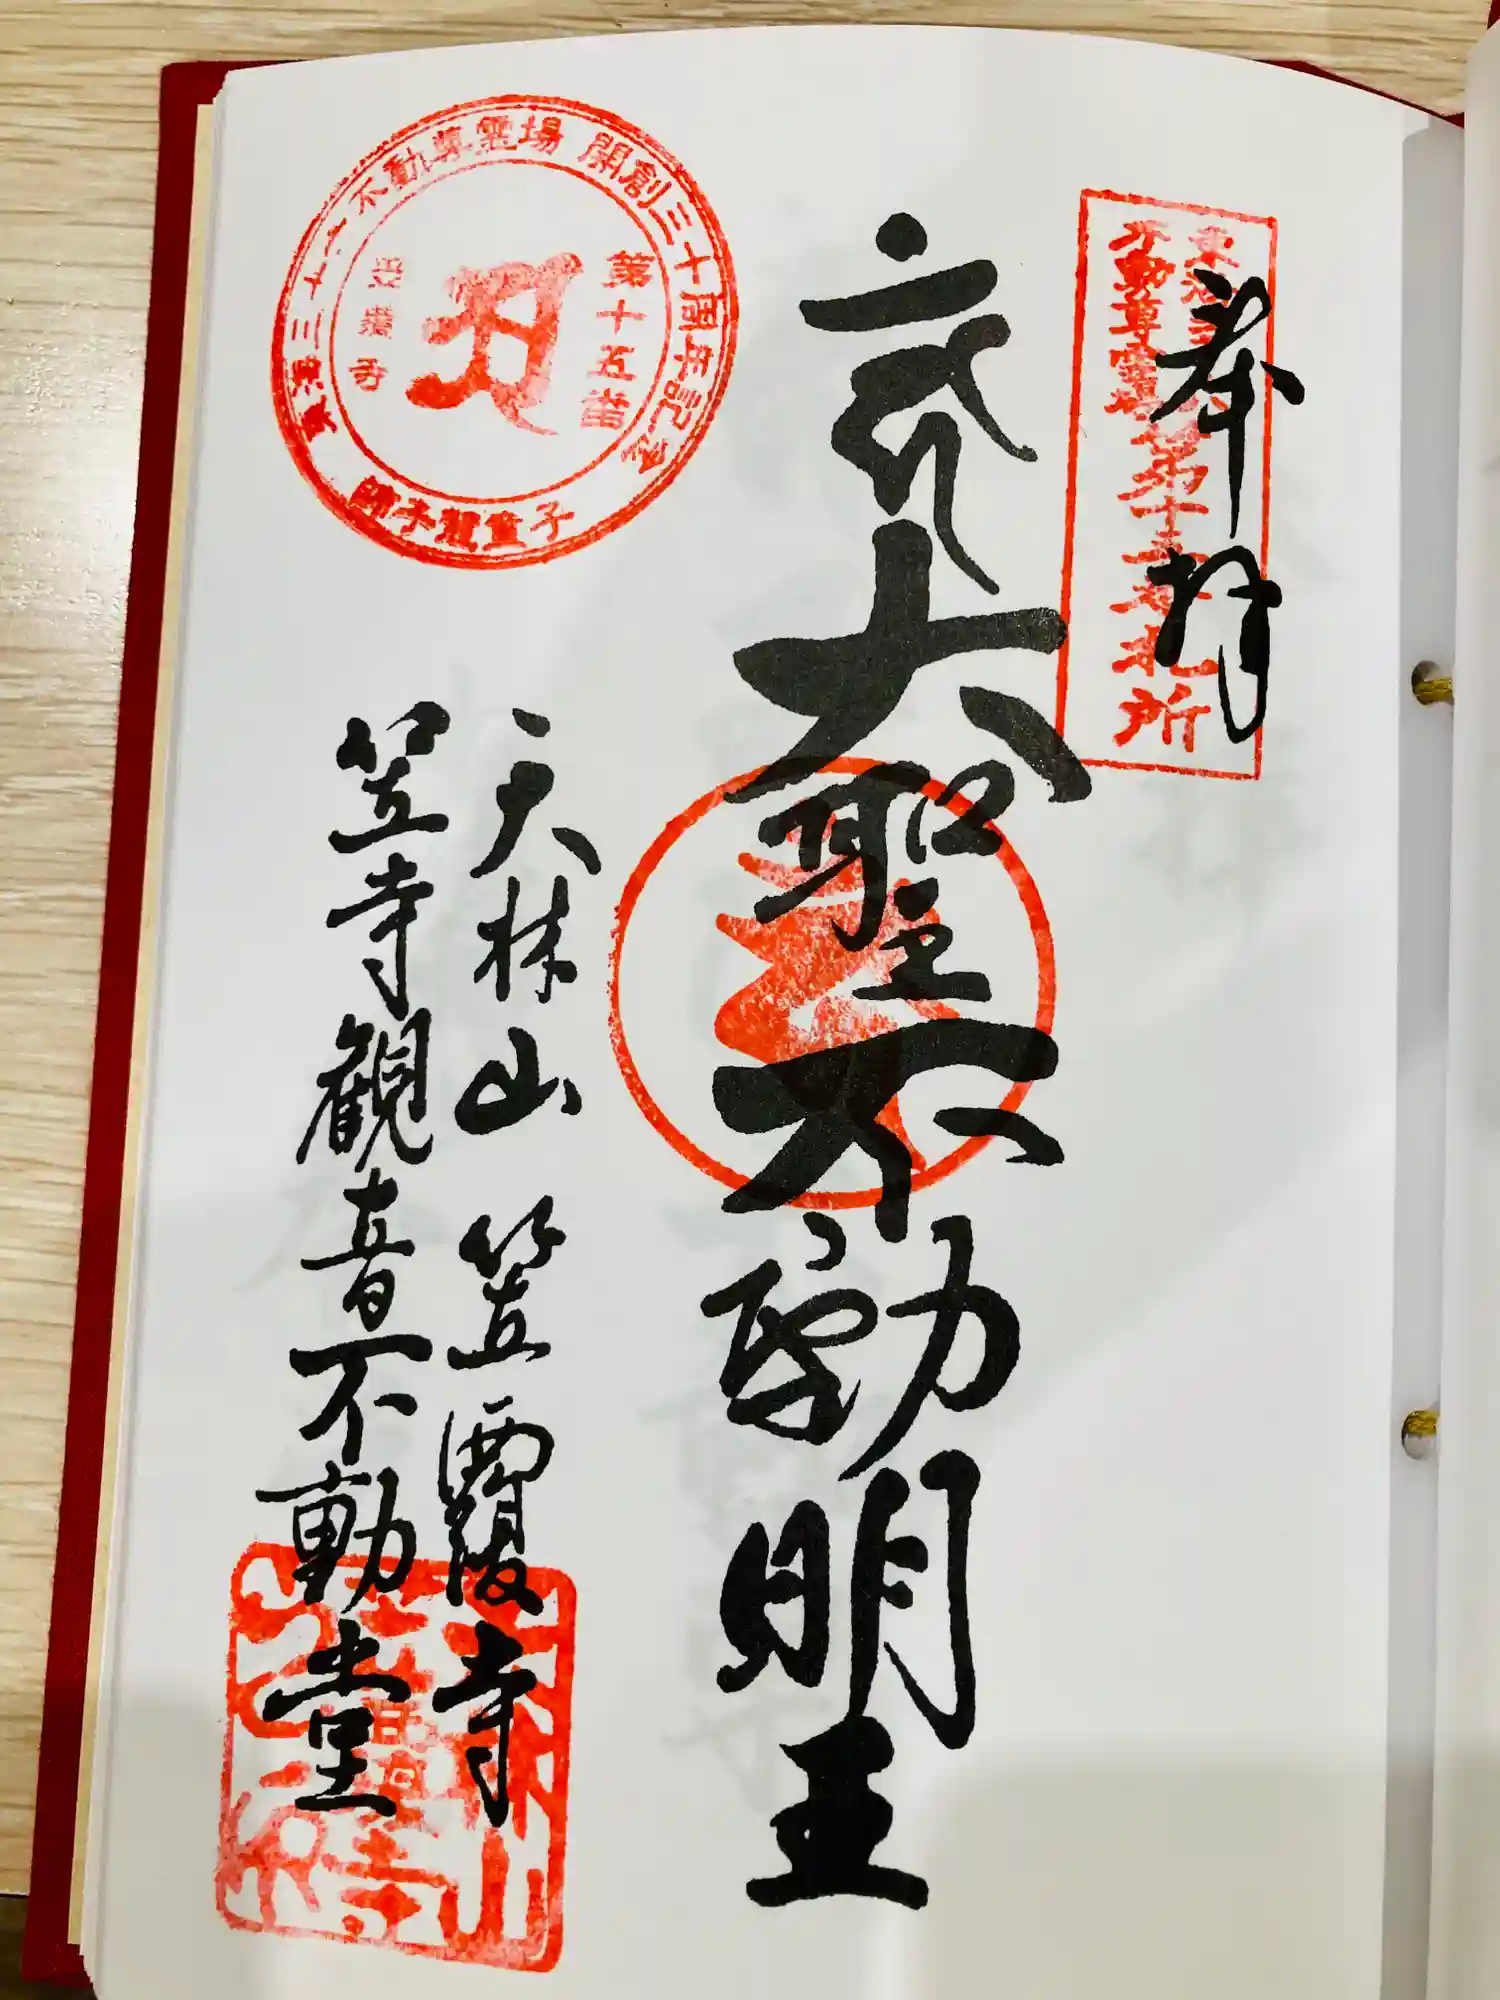 奉拝
東海三十六
不動尊霊場第十五番札所
大聖不動明王
天林山 笠覆寺
笠寺観音不動堂
東海三十六不動尊霊場 開創三十周年記念
第十五番
笠覆寺
師子慧童子